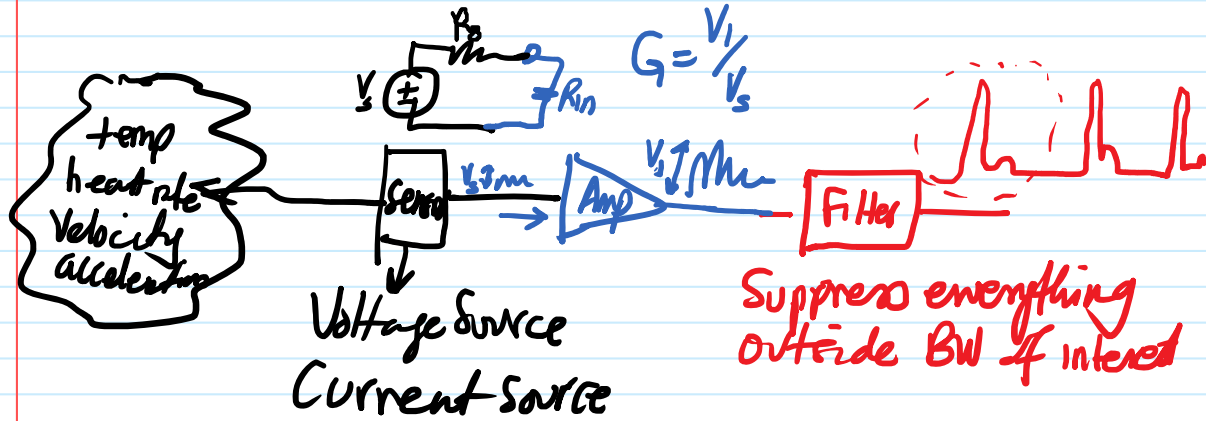 Rs
G = V1/Vs
Vs
Rin
temp
heat rate
Velocity
acceleration
Sensor
Vs
Amp
V1
Filter
Voltage Source
Current Source
Suppress everything
outside BW of interest